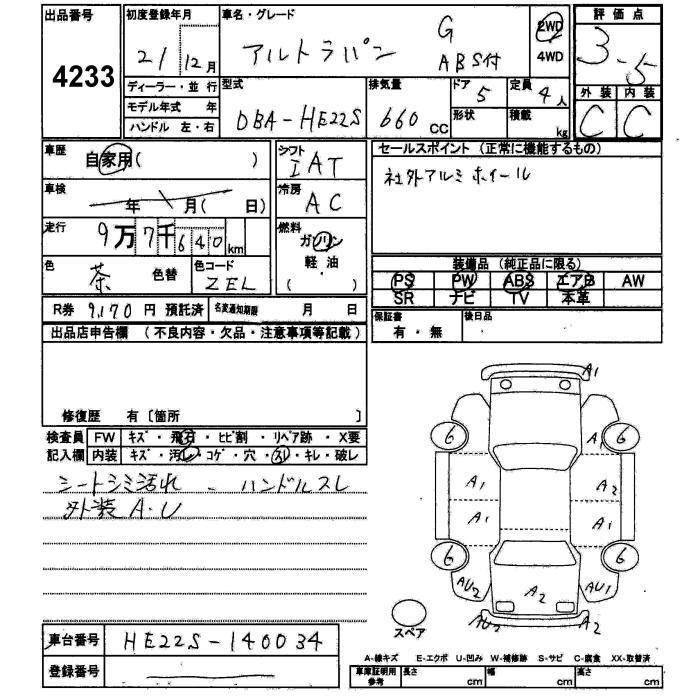 出品番号
4233
初度登録年月
21 12月
車名・グレード
アルトラパン G ABS付
2WD
4WD
評価点
3.5
外装 内装
C C
ディーラー・並行
モデル年式 年
ハンドル 左・右
型式
DBA-HE22S
排気量
660 CC
ドア 5
形状
定員 4人
積載 kg
車歴
自家用( )
車検
年 月( 日)
走行
9万7千640km
色
茶 色替
色コード
ZEL
シフト
IAT
冷房
AC
燃料
ガソリン
軽・油
( )
セールスポイント (正常に機能するもの)
社外アルミホイール
装備品 (純正品に限る)
PS PW ABS エアB AW
SR ナビ TV 本革
R券 9,170 円 預託済
名変通知期限 月 日
保証書
有・無
後日品
出品店申告欄 (不良内容・欠品・注意事項等記載)
修復歴 有〔箇所 〕
検査員 FW キズ・飛石・ヒビ割・リペア跡・X要
記入欄 内装 キズ・汚レ・コゲ・穴・スレ・キレ・破レ
シートシミ汚れ - ハンドルスレ
外装A.U
車台番号
HE22S-140034
登録番号
A1
6 A1 6
A1 A2
A1 A1
6 6
AU2 A2 AU1
AU2 A2
スペア
A-線キズ E-エクボ U-凹み W-補修跡 S-サビ C-腐食 XX-取替済
車庫証明用
参考
長さ cm 幅 cm 高さ cm